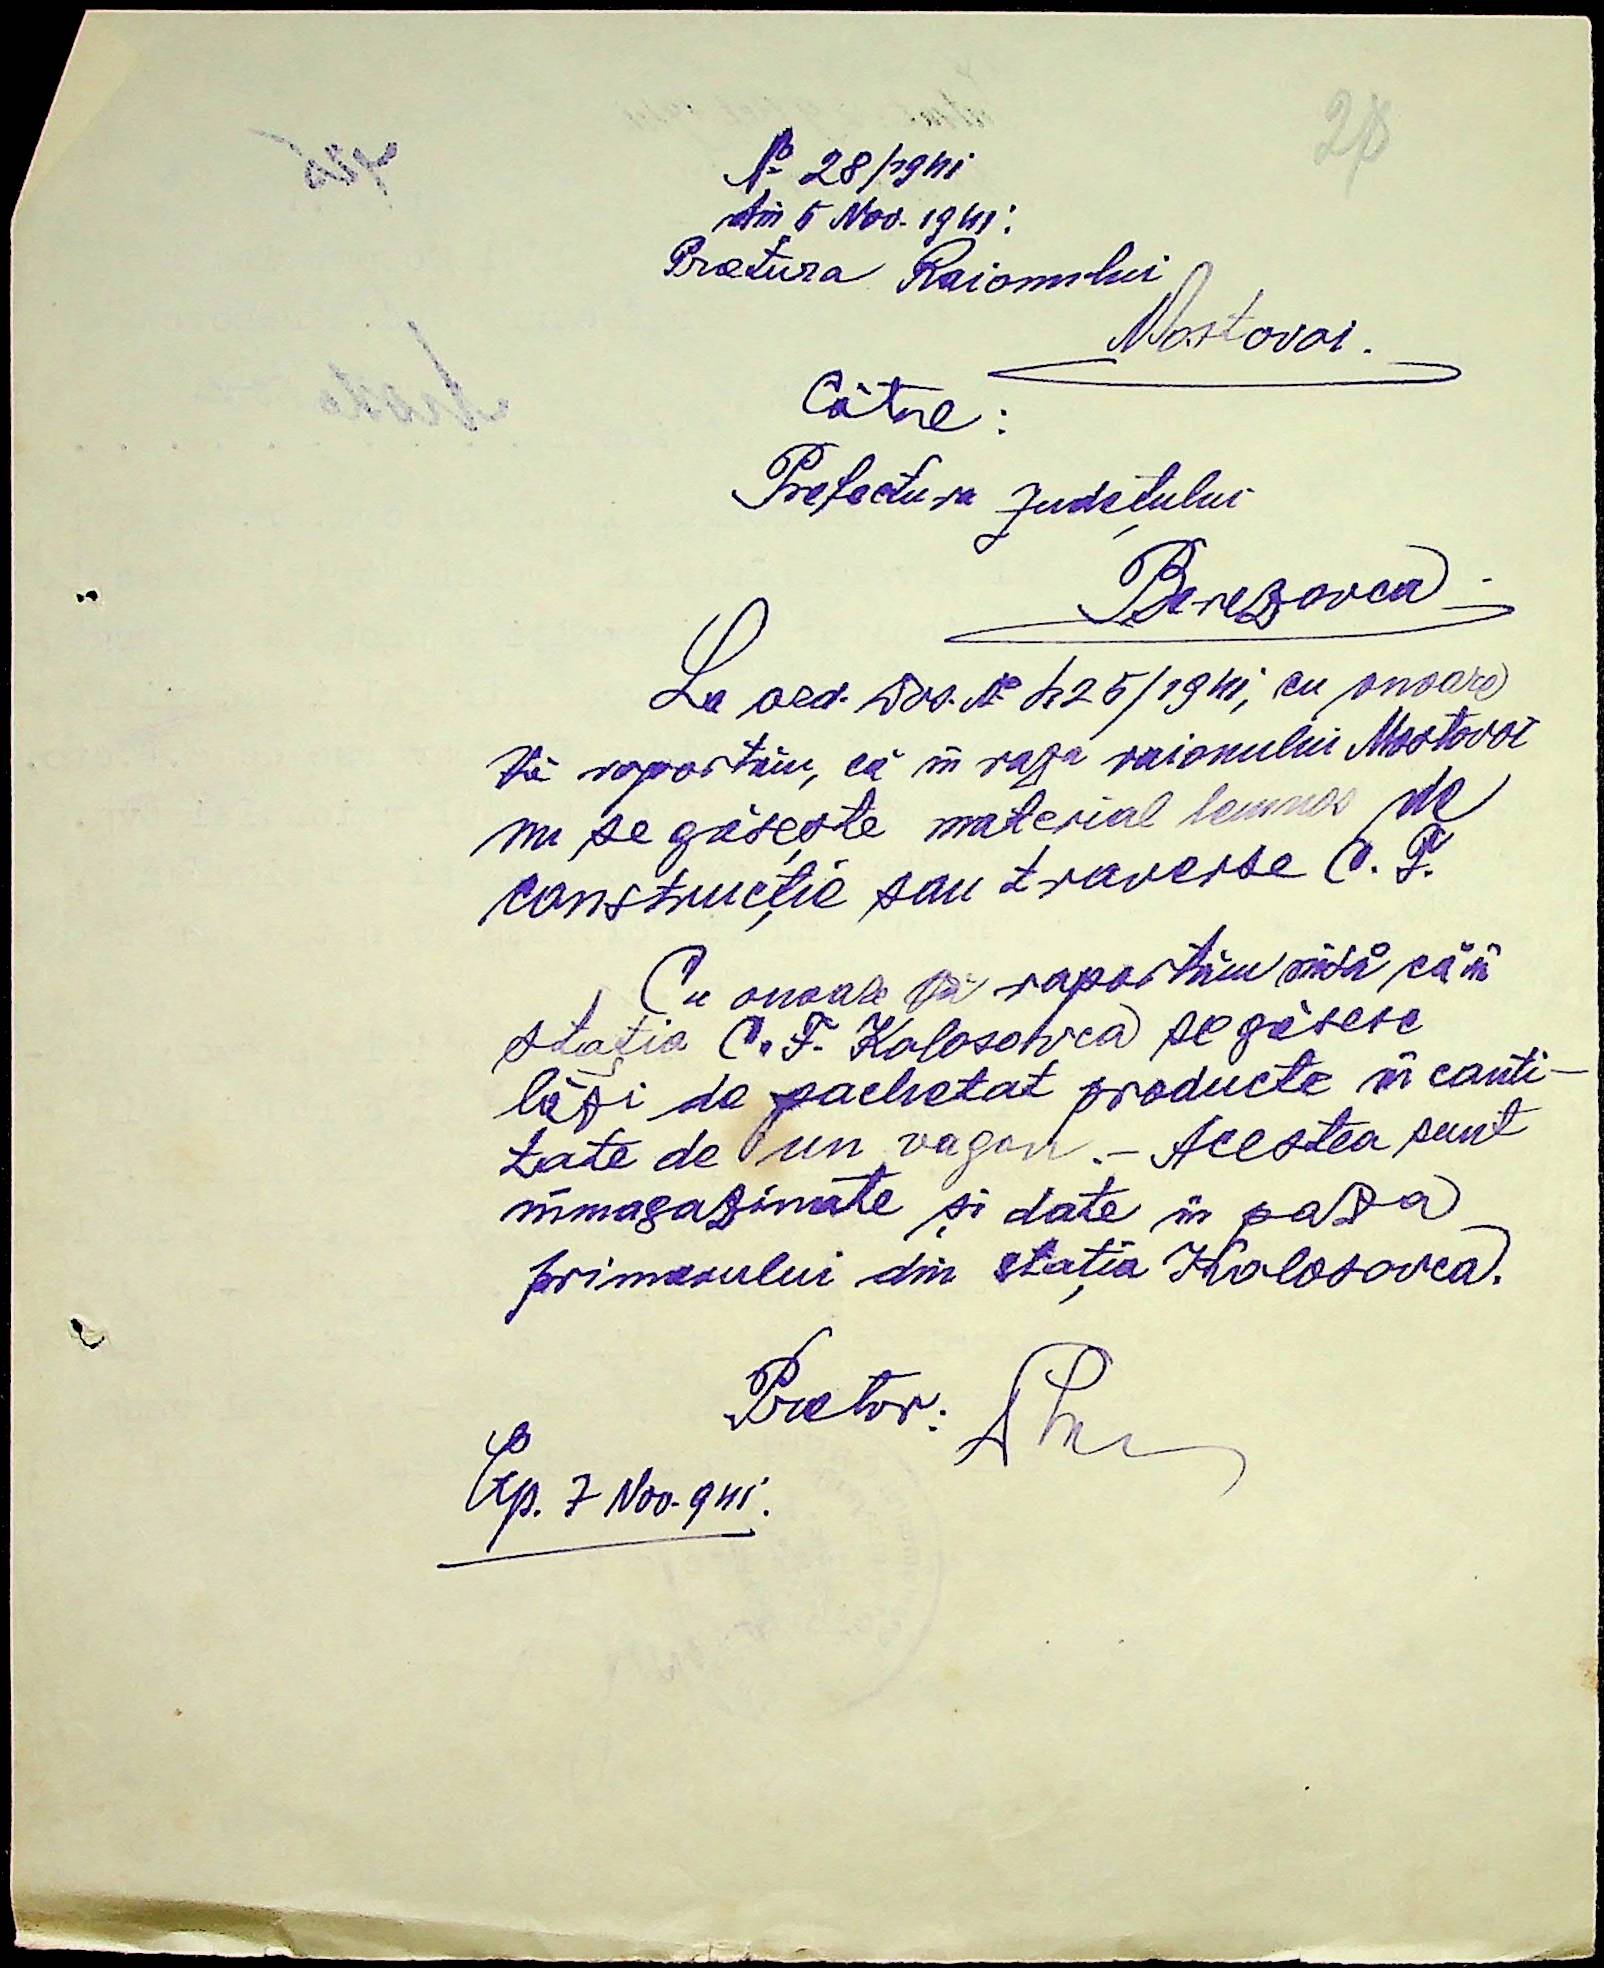 № 28/1941
din 5 Nov. 1941.
Pretura Raionului
Mostovoi.
Către:
Prefectura Județului
Berezovca
La ord. Dvs. № 425/1941, cu onoare
Vă raportăm, că în raza raionului Mostovoi
nu se găsește material lemnos de
construcție sau traverse C. F.
Cu onoare Vă raportăm însă că în
stația C. F. Kolosovca se găsesc
lăzi de pachetat producte în canti-
tate de un vagon. – Acestea sunt
înmagazinate și date în paza
primarului din stația Kolosovca.
Pretor:
Exp. 7 Nov. 941.